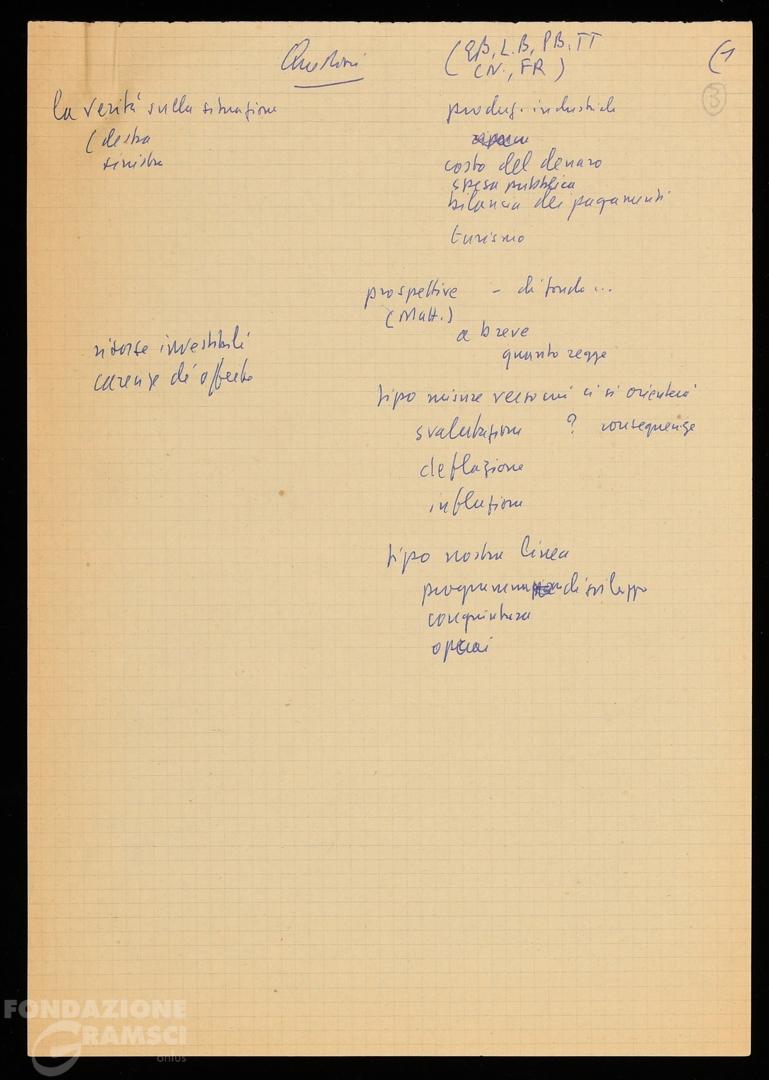 Questioni
(EB, L.B, PB, TT
CN., FR)
(1
3
la verità sulla situazione
(destra
sinistra
produz. industriale
costo del denaro
spesa pubblica
bilancia dei pagamenti
turismo
prospettive - di fondo...
(Matt.)
a breve
quanto regge
risorse investibili
carenze di offerta
tipo misure verso cui ci si orienterà
svalutazione ? conseguenze
deflazione
inflazione
tipo nostra linea
di sviluppo
congiuntura
operai
FONDAZIONE
GRAMSCI
onlus